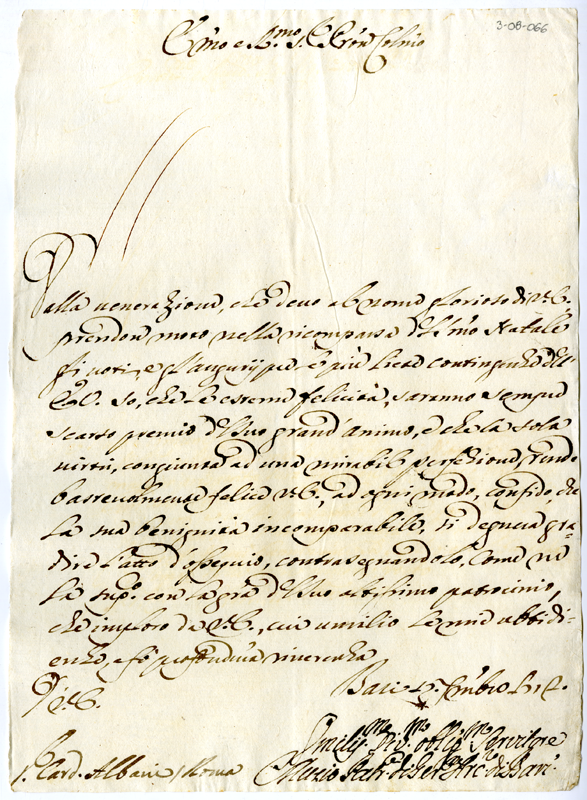 3-08-066
Em̃o e R.mo S.re P̃ron Col̃mo
Dalla venerazione, che devo al nome glorioso di V.E.
prendon moto nella ricomparsa del S̃mo Natale
gli augurij p le più liete contingenze dell'
E.V. So, che le esterne felicità, saranno sempre
scarso premio del suo grand'animo, e che la sola
virtù, congiunta ad una mirabil perfezione, rende
bastevolmente felice V.E., ad ogni modo, confido, che
la sua benignità incomparabile, si degnerà gra-
dire l'atto d'ossequio, contrasegnandolo, come ne
la supp.co con la gr̃a del suo altissimo patrocinio,
che imploro da V.E., cui umilio le mie ubbidi-
enze, e fò profondma riverenza
D V.E.
Bari X.mbre
Umilis.mo Div.mo obblig.mo Servitore
Muzio Arc. di Bari
S. Card. Albani / Roma